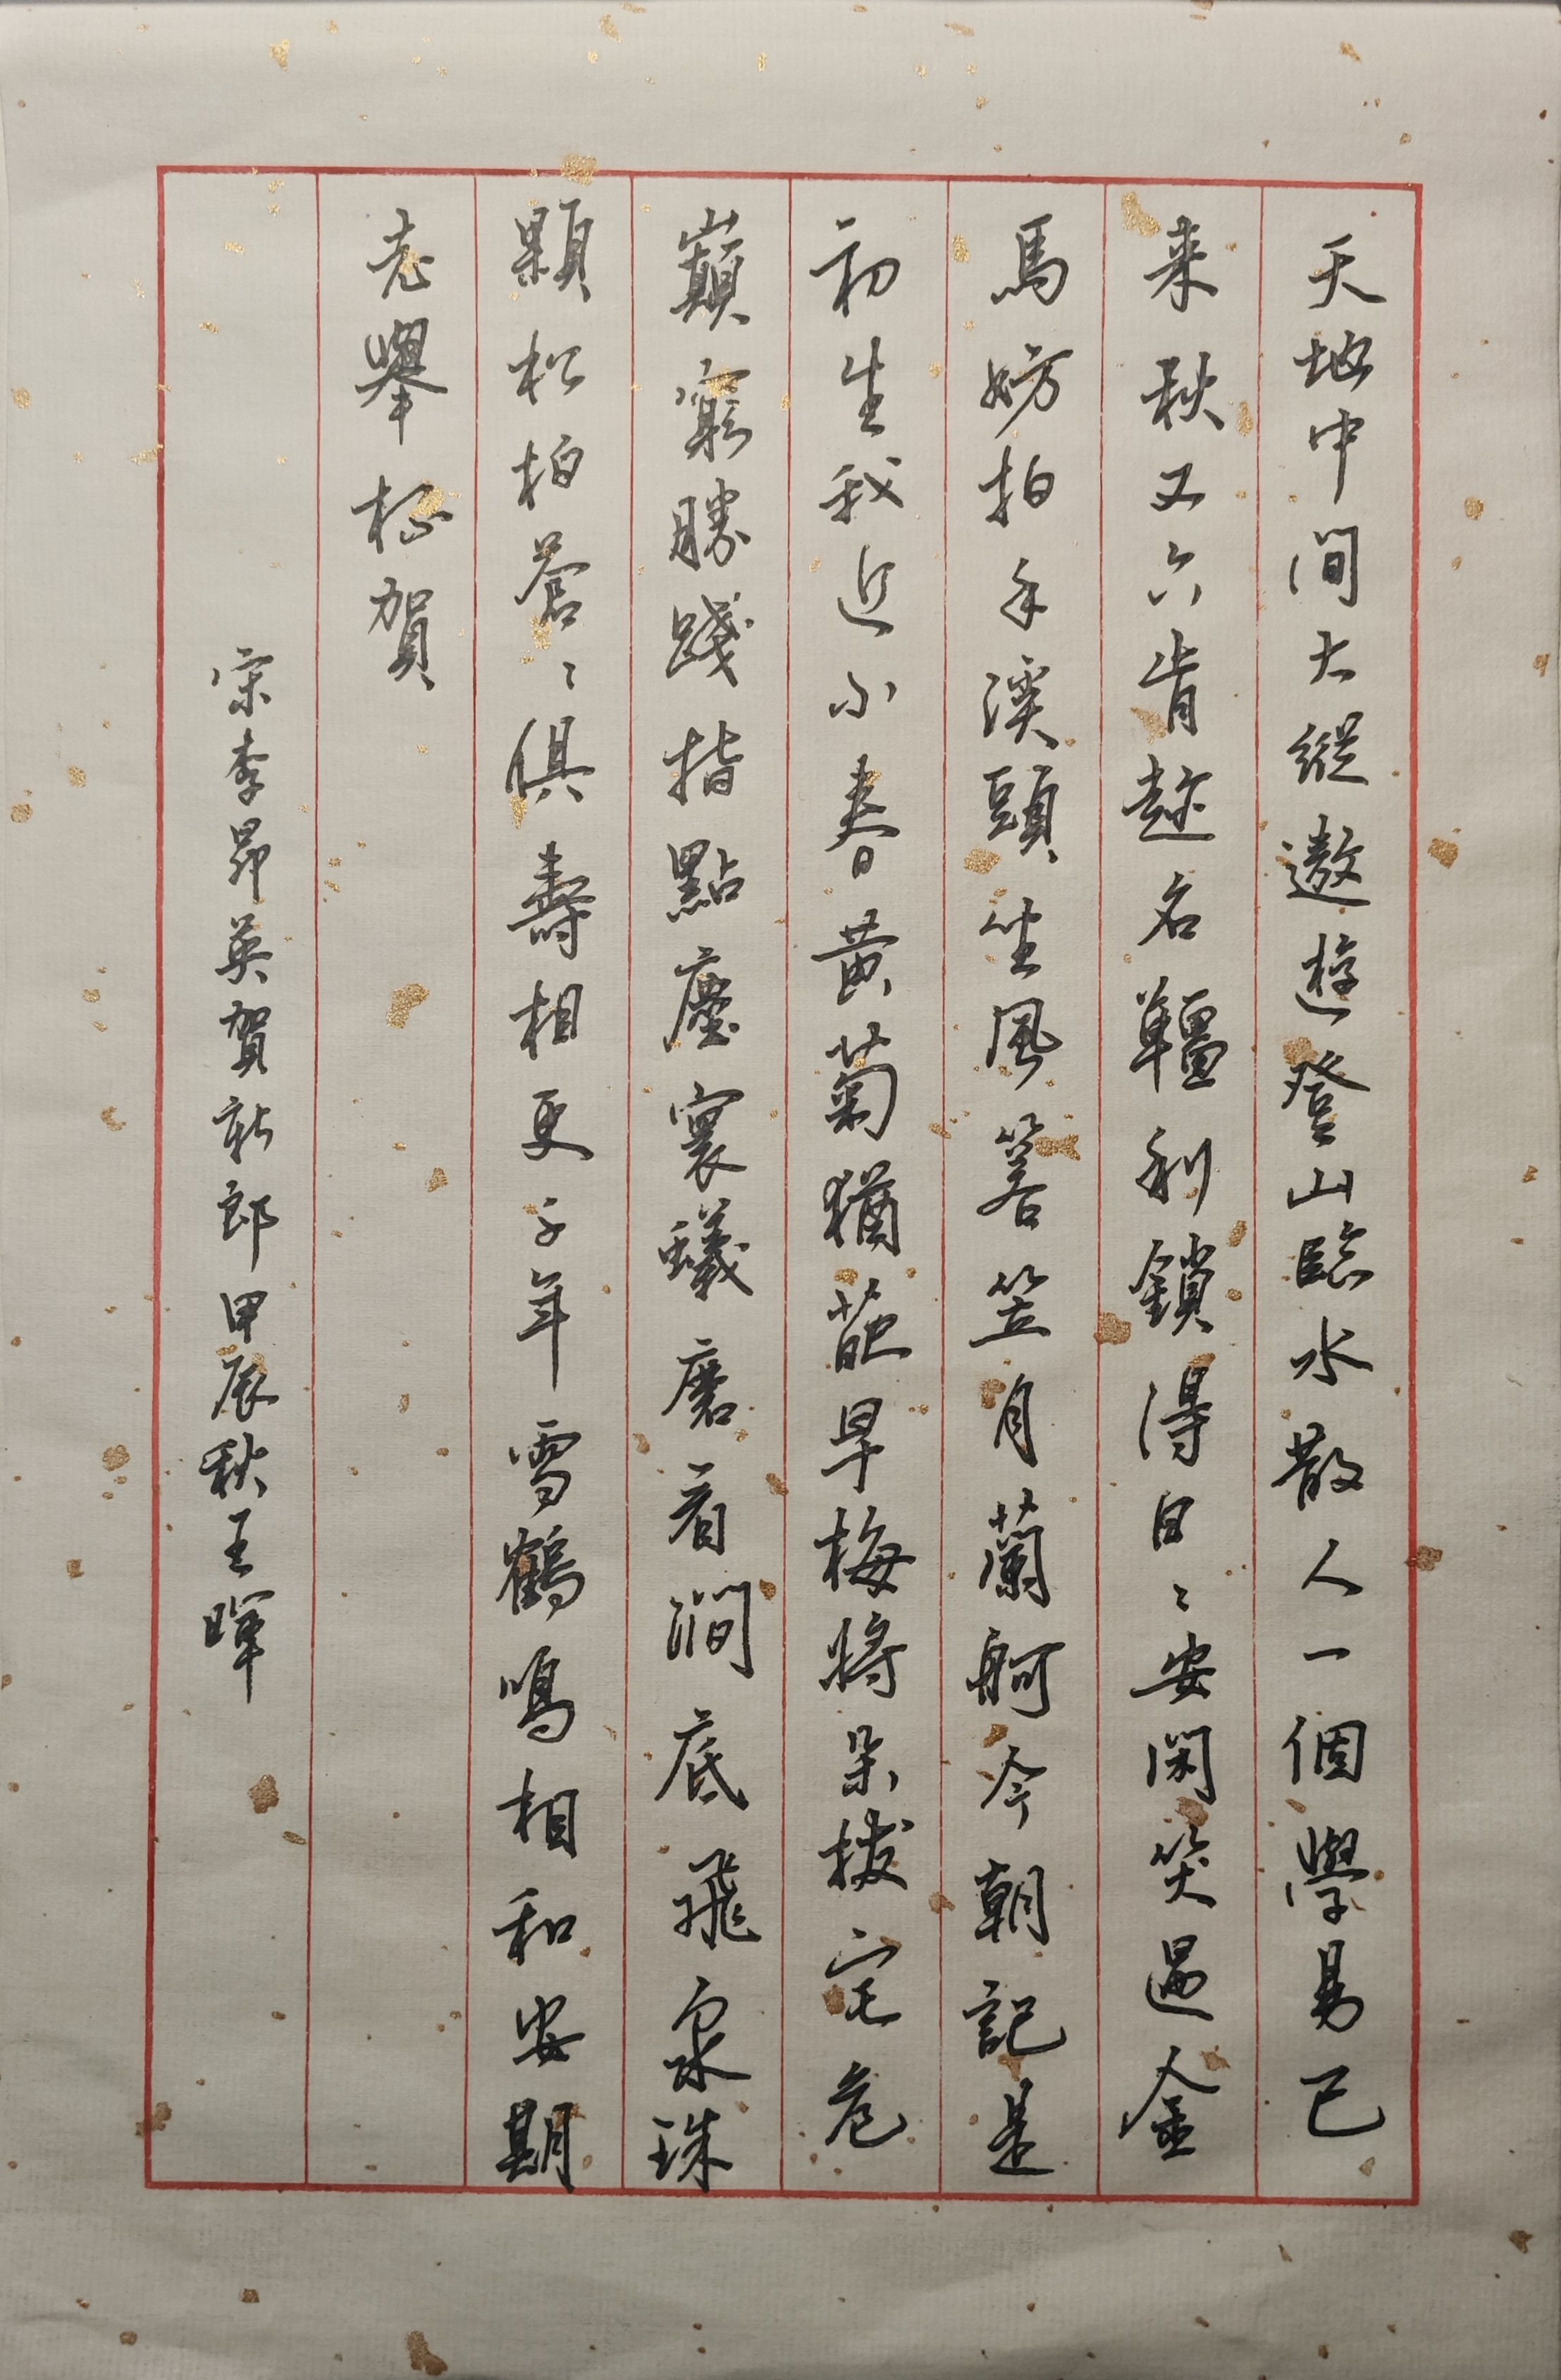 天地中间大縱遨遊登山臨水散人一個學易已
来秋又六肯趁名韁利鎖得日〻安闲笑過金
馬妨拍手溪頭坐風箬笠月蘭舸今朝記是
初生我近小春黄菊猶葩早梅將朵拔宅危
巔窮勝踐指點塵寰蟻磨看澗底飛泉珠
顆松柏蒼〻俱壽相更千年雪鶴鳴相和安期
老舉杯賀
宋李昴英賀新郎甲辰秋王暉